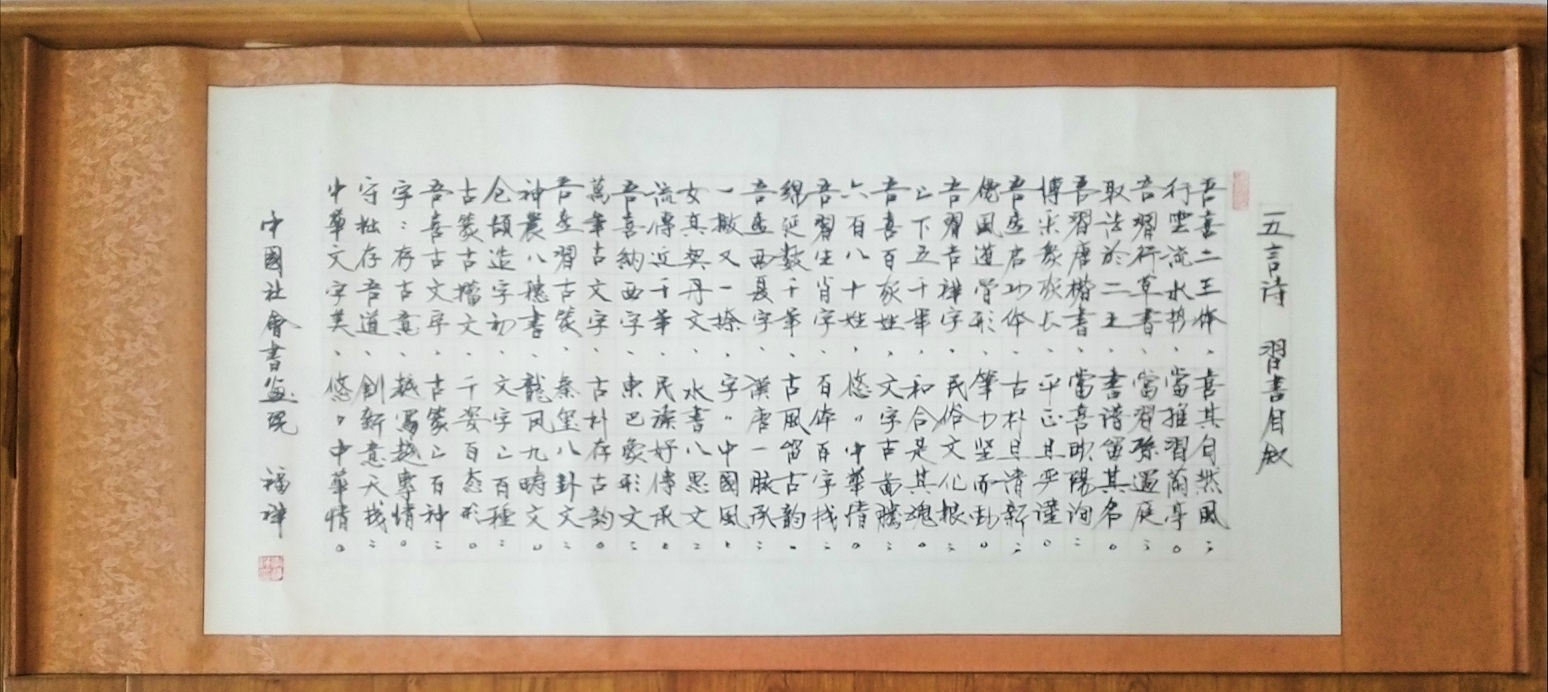 五言诗 習書自叙
吾喜二王体、喜其自然風；
行雲流水妙、當推習蘭亭。
吾習行草書、當習孫過庭；
取法於二王、書譜留其名。
吾習唐楷書、當喜欧陽洵；
博采衆家长、平正且严谨。
吾造启功体、古朴且清新；
優風道骨形、筆力坚而勁。
吾習吉祥字、民俗文化根；
上下五千年、和合是其魂。
吾喜百家姓、文字古畵騰；
六百八十姓、悠〃中華情。
吾習生肖字、百体百字找；
綿延数千年、古風留古韵。
吾造西夏字、漢唐一脉承；
一撇又一捺、字〃中國風。
女真契丹文、水書八思文；
流傳近千年、民族好傳承。
吾喜納西字、東巴象形文；
萬年古文字、古朴存古韵。
吾造習古篆、秦璽八卦文；
神農八穗書、龍凤九畴文。
仓頡造字初、文字上百種；
古篆古檔文、千姿百态形。
吾喜古文字、古篆上百种；
字：存古意、越寫越專情。
守拙存吾道、創新意天找；
中華文字美、悠〃中華情。
中國社會書画院 福祥